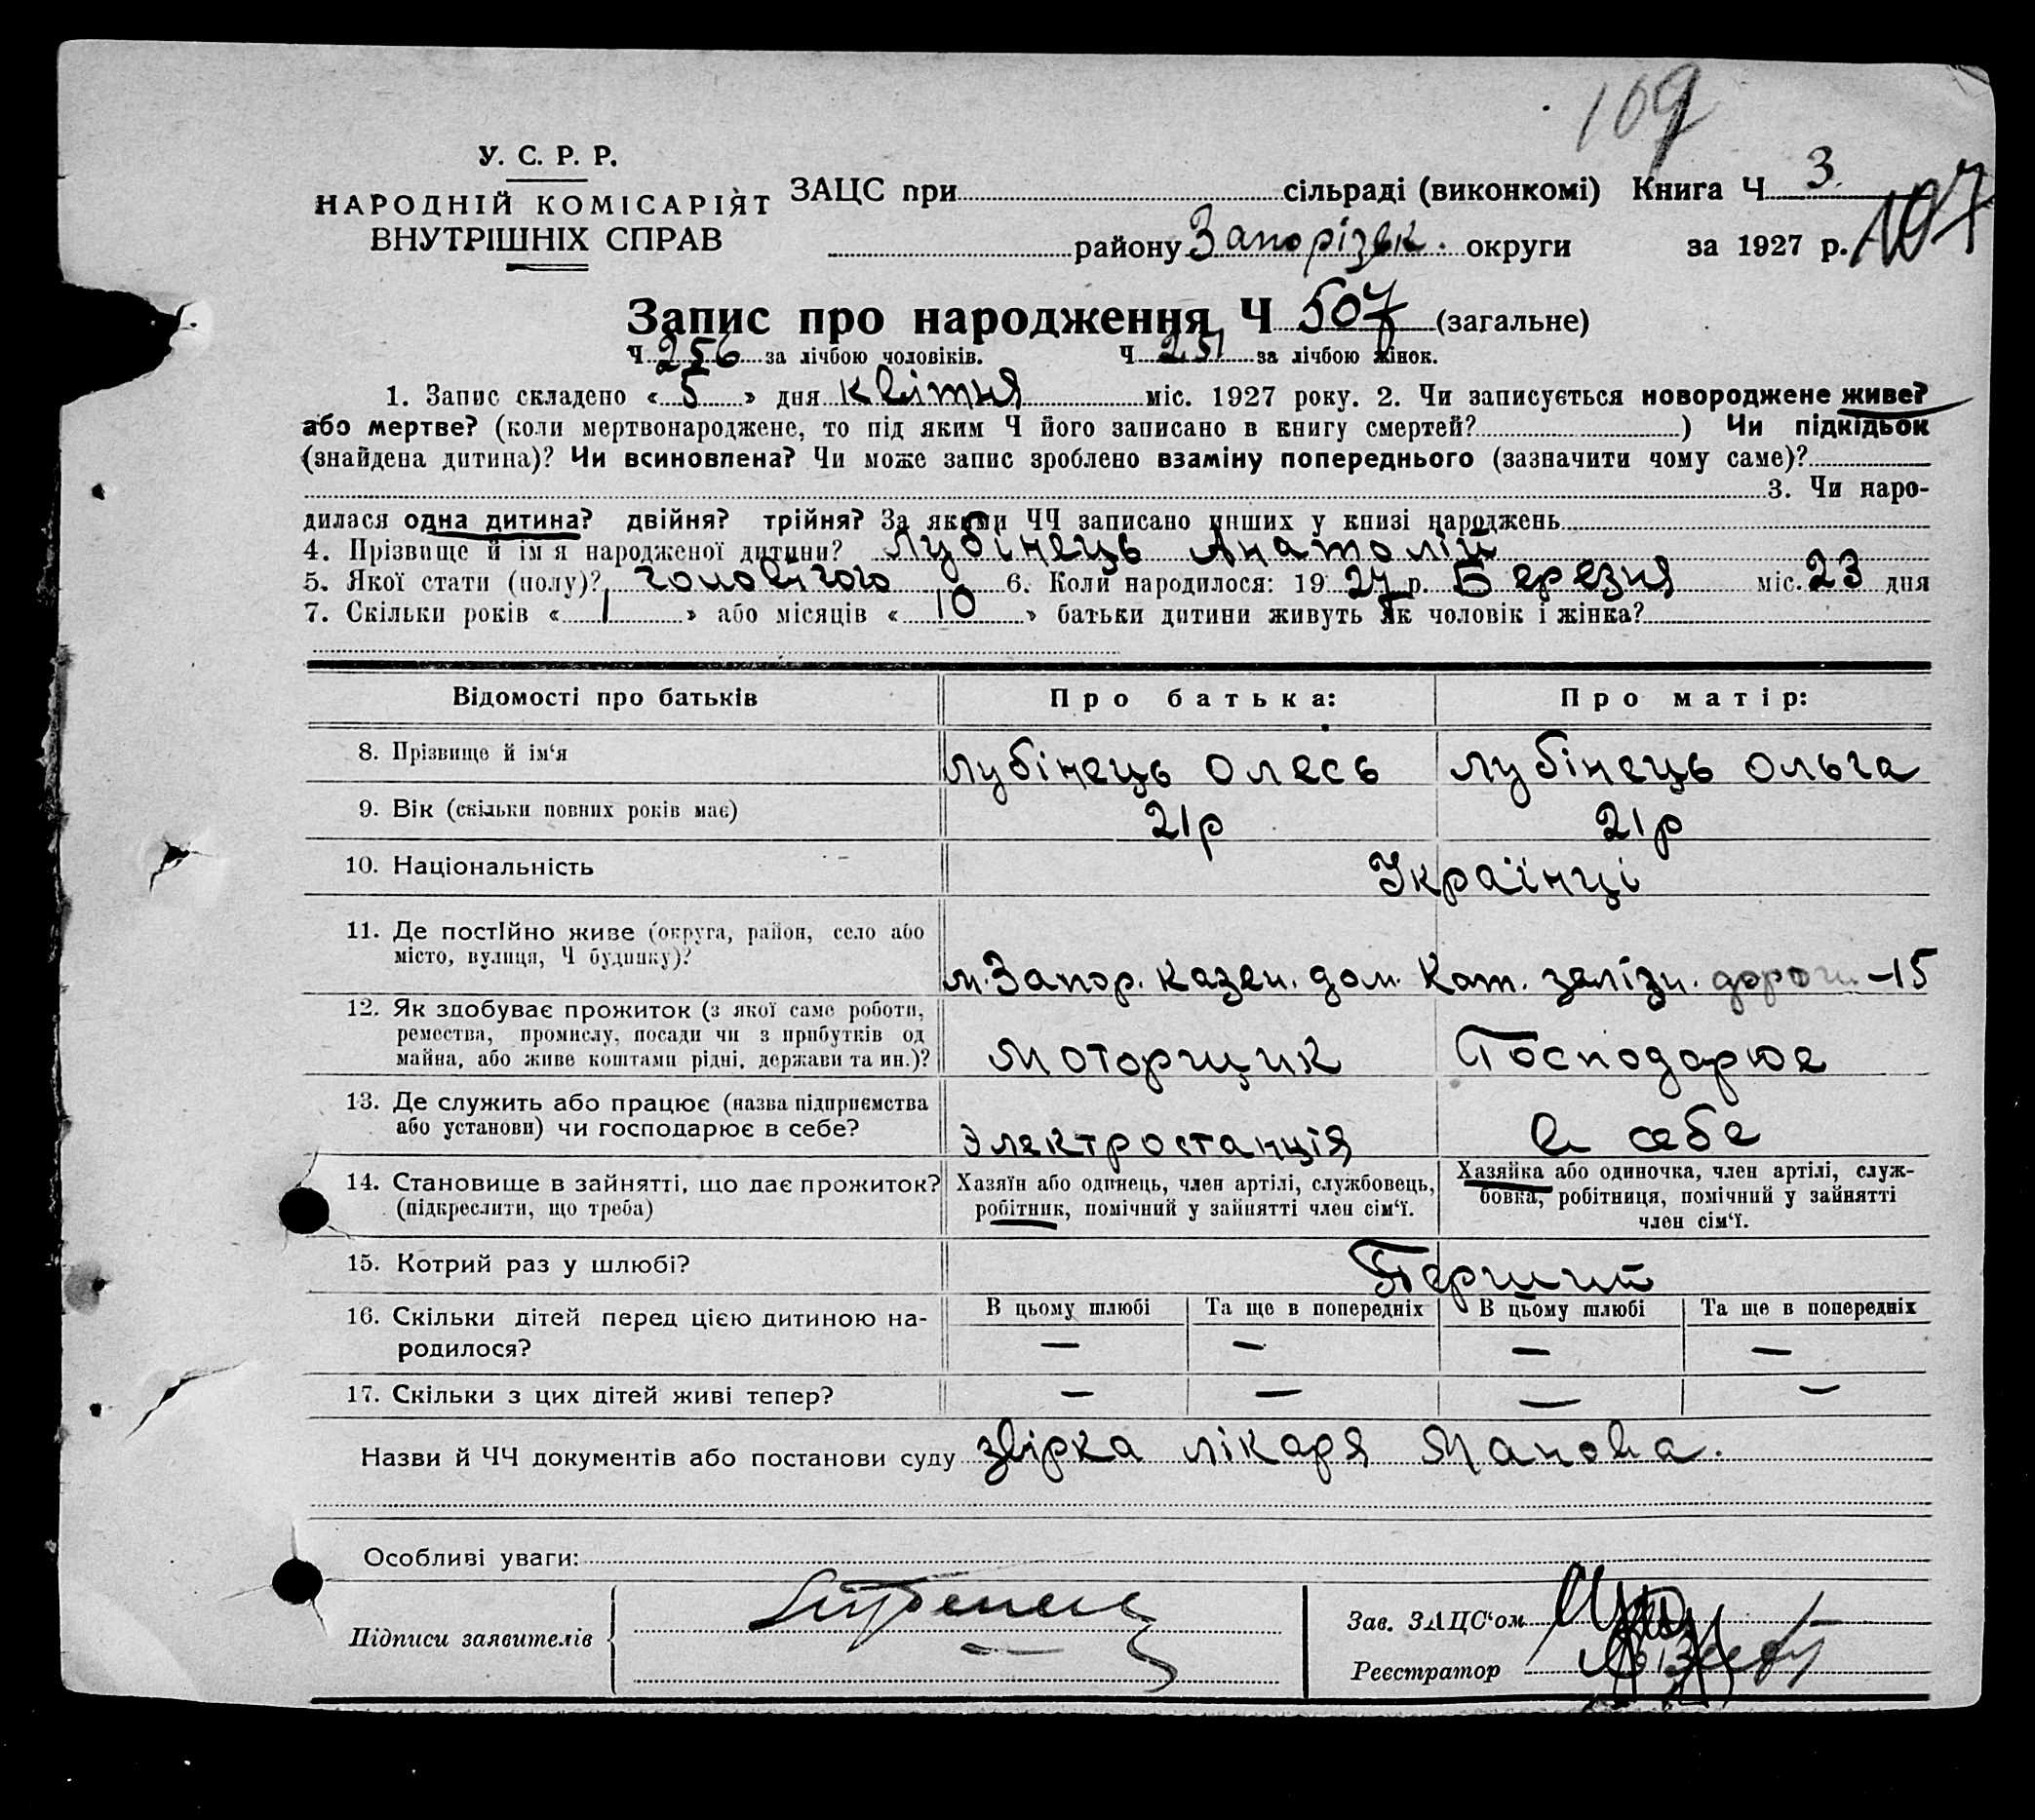 109
У. С. Р. Р.
НАРОДНІЙ КОМІСАРІЯТ
ВНУТРІШНІХ СПРАВ
ЗАЦС при сільраді (виконкомі) Книга Ч 3
району Запорізьк. округи за 1927 р. 107
Запис про народження Ч 507 (загальне)
Ч 256 за лічбою чоловіків. Ч 251 за лічбою жінок.
1. Запис складено « 5 » дня квітня міс. 1927 року. 2. Чи записується новороджене живе?
або мертве? (коли мертвонароджене, то під яким Ч його записано в книгу смертей? ) Чи підкідьок
(знайдена дитина)? Чи всиновлена? Чи може запис зроблено взаміну попереднього (зазначити чому саме)?
3. Чи наро-
дилася одна дитина? двійня? трійня? За якими ЧЧ записано инших у книзі народжень
4. Прізвище й ім я народженої дитини? Лубінець Анатолій
5. Якої стати (полу)? чоловічого 6. Коли народилося: 19 27 р. Березня міс. 23 дня
7. Скільки років « 1 » або місяців « 10 » батьки дитини живуть як чоловік і жінка?
Відомості про батьків Про батька: Про матір:
8. Прізвище й ім‘я Лубінець Олесь Лубінець Ольга
9. Вік (скільки повних років має) 21р 21р
10. Національність Українці
11. Де постійно живе (округа, район, село або
місто, вулиця, Ч будинку)? м. Запор. казен. дом. Кат. залізн. дороги -15
12. Як здобуває прожиток (з якої саме роботи,
ремества, промислу, посади чи з прибутків од
майна, або живе коштами рідні, держави та ин.)? Моторщик Господарює
13. Де служить або працює (назва підприємства
або установи) чи господарює в себе? Электростанція в себе
14. Становище в зайнятті, що дає прожиток? Хазяїн або одинець, член артілі, службовець, Хазяйка або одиночка, член артілі, служ-
(підкреслити, що треба) робітник, помічний у зайнятті член сім‘ї. бовка, робітниця, помічний у зайнятті
член сім‘ї.
15. Котрий раз у шлюбі? Перший
16. Скільки дітей перед цією дитиною на- В цьому шлюбі Та ще в попередніх В цьому шлюбі Та ще в попередніх
родилося? — — — —
17. Скільки з цих дітей живі тепер? — — — —
Назви й ЧЧ документів або постанови суду звірка лікаря Панова.
Особливі уваги:
Підписи заявителів
Зав. ЗАЦС‘ом
Реєстратор